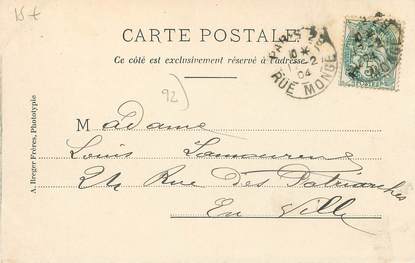 15 €
CARTE POSTALE
Ce côté est exclusivement réservé à l'adresse.
PARIS
RUE MONGE
04
92)
Madame
Louis Lamoureux
24 Rue des Patriarches
En Ville
A. Breger Frères, Phototypie